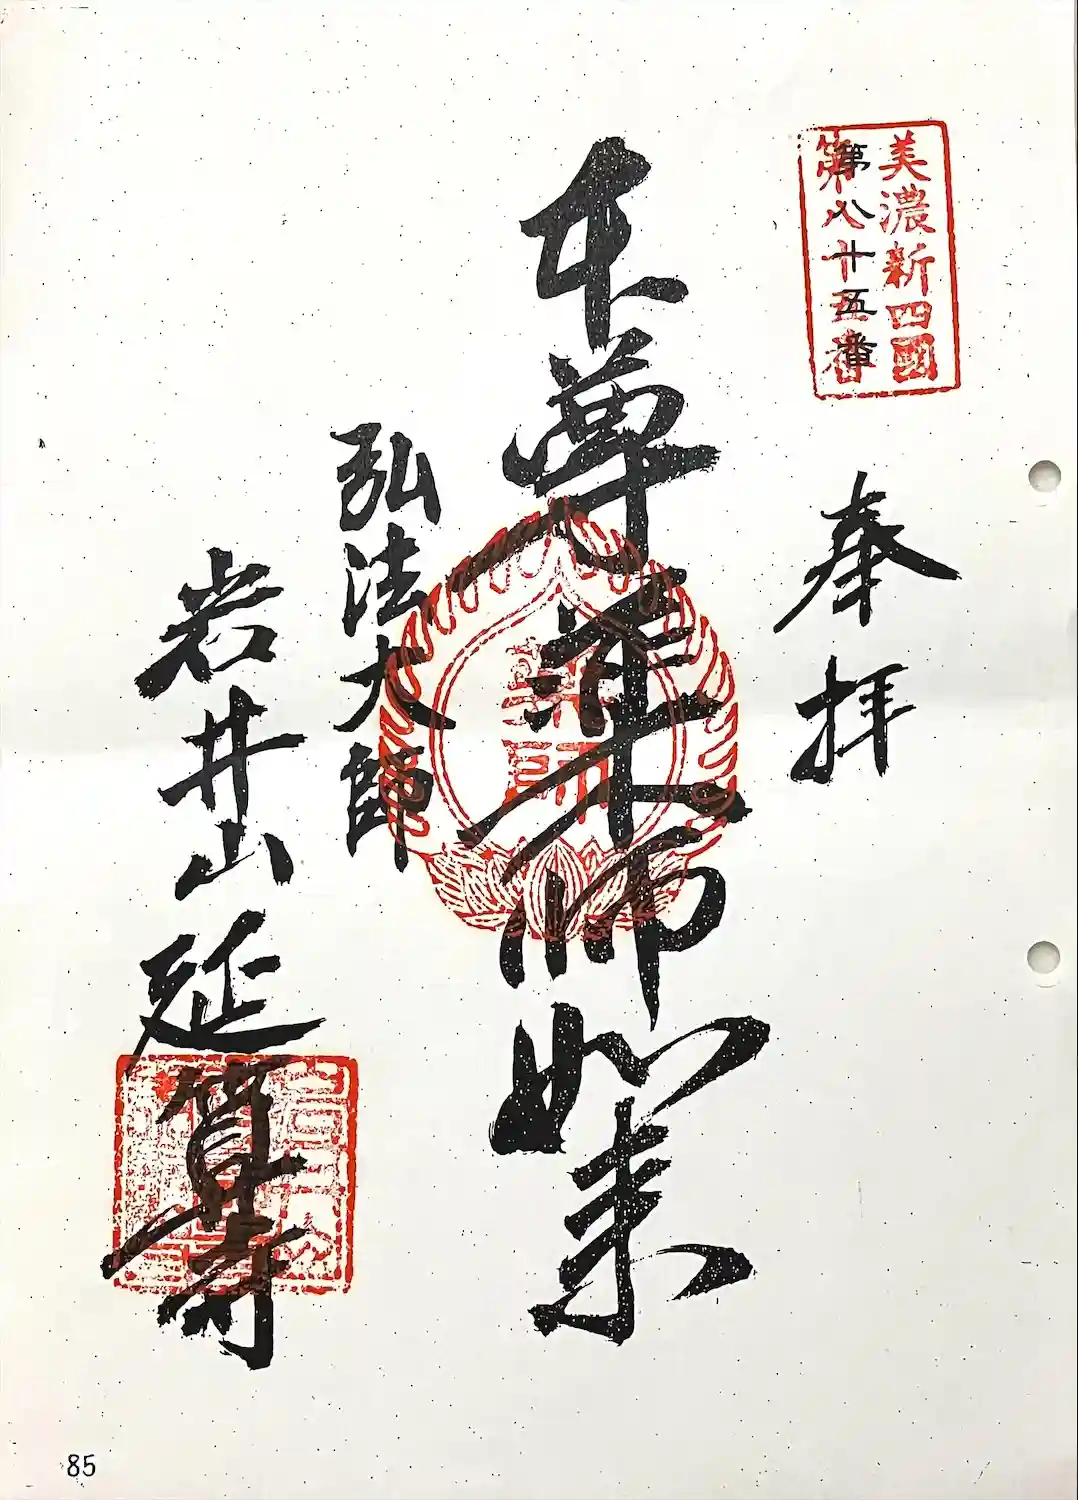 美濃新四國
第八十五番
奉拝
本尊薬師如来
薬師
弘法大師
岩井山延算寺
85